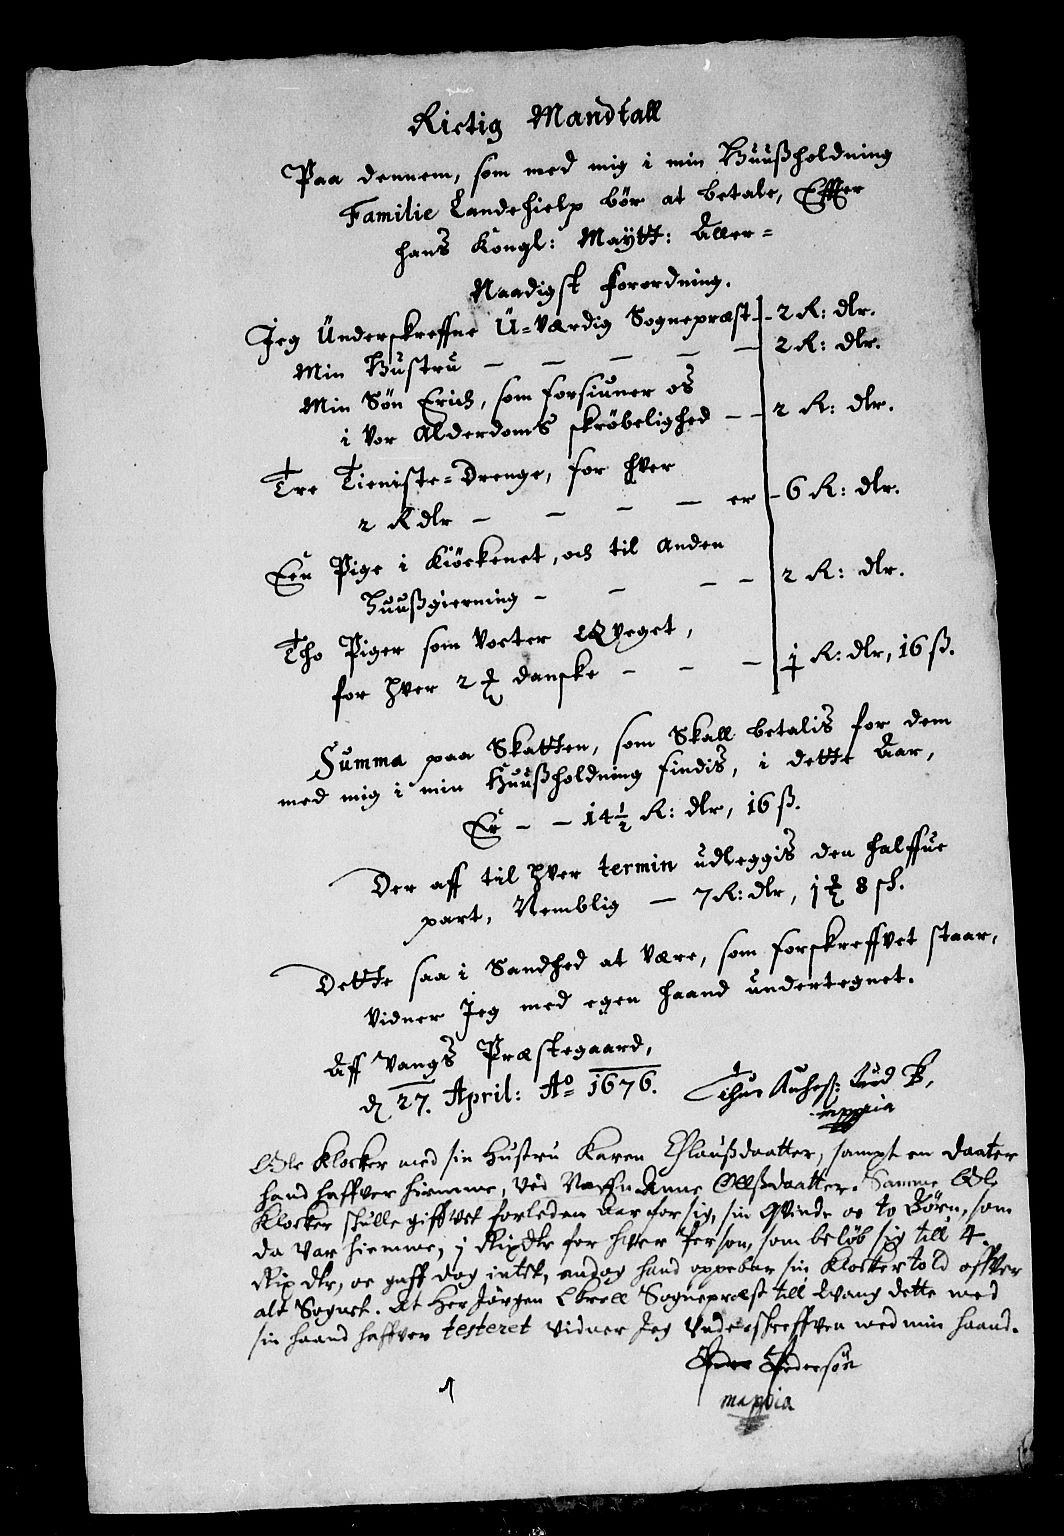 Rictig Mandtall
Paa dennem, som med mig i min Huußholdning
Familie Landehielp bør at betale, Effter
hans Kongl: Maÿtt: Aller=
Naadigst Forordning.
Jeg Underskreffne U=værdig Sognepræst - 2 R: dlr.
Min Hustru - - - - - 2 R: dlr.
Min Søn Erich, som forsiuner os
i vor Alderdoms skrøbelighed - - 2 R: dlr.
Tre Tieniste=Drenge, for hver
2 R dlr - - - - er - 6 R: dlr.
Een Pige i Kiöckenet, och til anden
Huußgierning - - - - 2 R: dlr.
Tho Piger som vocter Qveget,
for hver 2 danske - - - R: dlr, 16 ß.
Summa paa Skatten, som Skall betalis for dem
med mig i min Huußholdning findis, i dette Aar,
Er - - 14½ R: dlr, 16 ß.
Der aff til hver termin udleggis den halffue
part, Nemblig - 7 R: dlr, 1 8 sh.
Dette saa i Sandhed at være, som forskreffvet staar,
vidner Jeg med egen haand undertegnet.
Aff Vangs Præstegaard,
d 27. April: Ao 1676.
mppria
Ole Klocker med sin Hustru Karen Olaußdaatter, sampt en daater
hand haffver hiemme, ved Naffn Anne Ollßdaatter. Samme Ole
Klocker skulle giffvet forleden Aar for sig, sin Qvinde oc to Børn, som
da var hiemme, j Rixdlr for hver Person, som beløb sig till 4
Rix dlr, oc gaff dog intet, andog hand oppebar sin Klocker told offver
alt Sognet. At Her Jørgen Sognepræst till Wang dette med
sin haand haffver testeret vidner Jeg Underskreffven med min haand.
Pedersøn
mappria